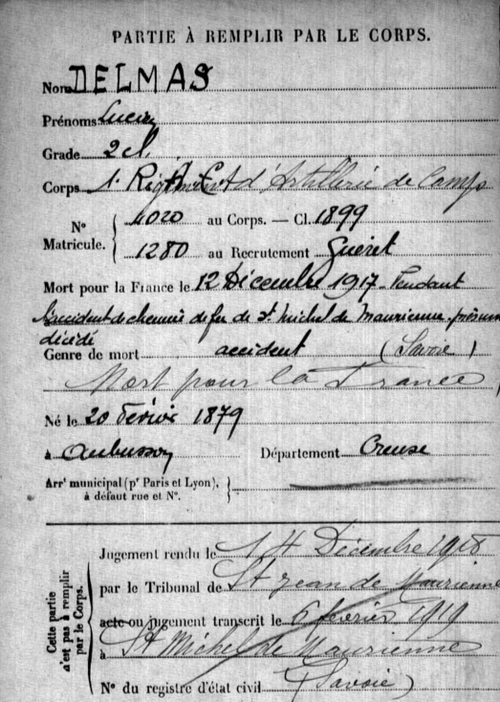 PARTIE À REMPLIR PAR LE CORPS.
Nom DELMAS
Prénoms Lucien
Grade 2 cl.
Corps 1er Régiment d'Artillerie de Camp
N° Matricule. 4020 au Corps. — Cl. 1899
1280 au Recrutement Guéret
Mort pour la France le 12 Décembre 1917 Pendant
l'accident de chemin de fer de St Michel de Maurienne, présumé
décédé
Genre de mort accident (Savoie)
Mort pour la France
Né le 20 Février 1879
à Aubusson Département Creuse
Arrt municipal (pr Paris et Lyon),
à défaut rue et N°.
Cette partie n'est pas à remplir par le Corps.
Jugement rendu le 14 Décembre 1918
par le Tribunal de St Jean de Maurienne
acte ou jugement transcrit le 6 février 1919
à St Michel de Maurienne
N° du registre d'état civil (Savoie)